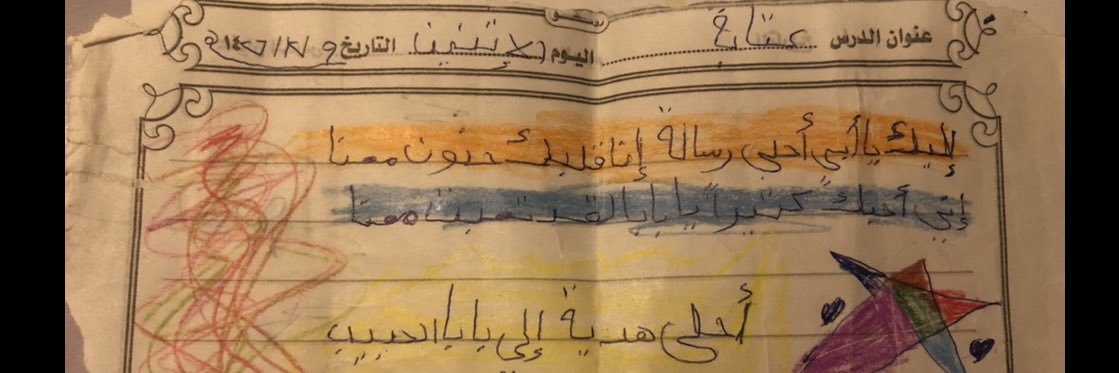 عنوان الدرس كتابة اليوم الإثنين التاريخ ٩/٢/١٤٢٦
إليك يا أبي أحلى رسالة إنا قلبك حنون معنا
إني أحبك كثيراً يا بابا لقد تعبت معنا
أحلى هدية إلى بابا الحبيب